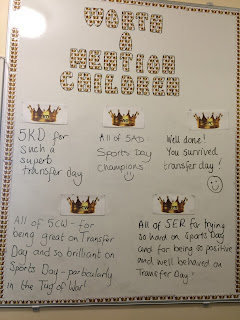 WORTH
A
MENTION
CHILDREN
5KD for
such a
superb
transfer day
All of 5AD
Sports Day
Champions
Well done!
You survived
transfer day!
All of 5CW - for
being great on Transfer
Day and so brilliant on
Sports Day - particularly
in the Tug of War!
All of 5ER for trying
so hard on Sports Day
and for being so positive
and well behaved on
Transfer Day.